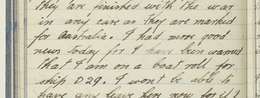 they are finished with the war
in any case as they are marked
for Australia. I had more good
news today for I have been warned
that I am on a boat roll for
ship D29. I won't be able to
have any leave here now for